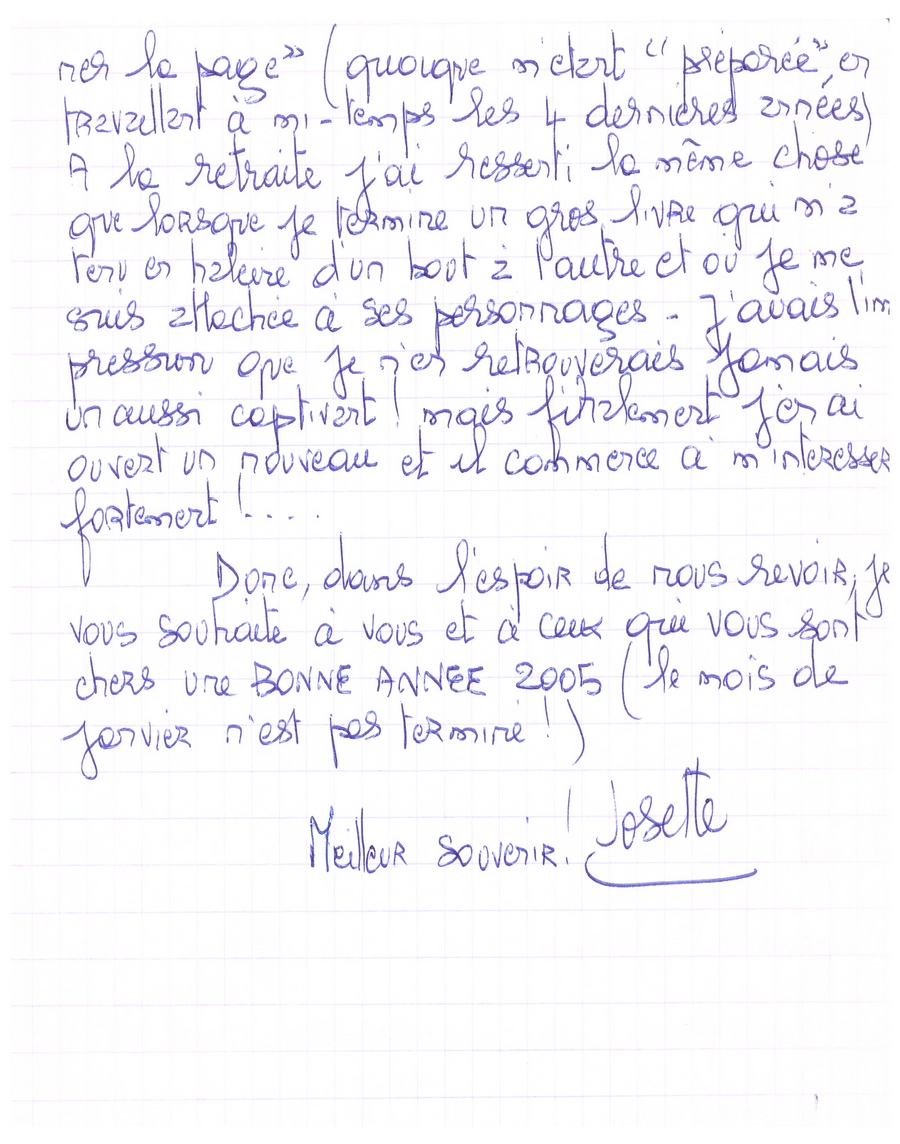 ner la page" (quoique m'étant "préparée", en
travaillant à mi-temps les 4 dernières années)
A la retraite j'ai ressenti la même chose
que lorsque je termine un gros livre qui m'a
tenu en haleine d'un bout à l'autre et où je me
suis attachée à ses personnages - J'avais l'im
pression que je n'en retrouverais jamais
un aussi captivant ! mais finalement j'en ai
ouvert un nouveau et il commence à m'interesser
fortement !....
Donc, dans l'espoir de nous revoir, je
vous souhaite à vous et à ceux qui vous sont
chers une BONNE ANNEE 2005 (le mois de
janvier n'est pas terminé !)
Meilleur souvenir ! Josette